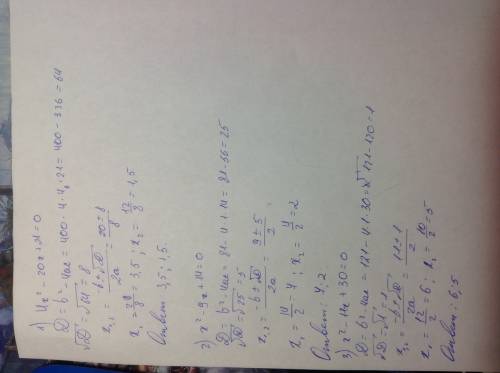 1) 4x² - 20x + 21 = 0
D = b² - 4ac = 400 - 4·4·21 = 400 - 336 = 64
√D = √64 = 8
x₁,₂ = -b ± √D / 2a = 20 ± 8 / 8
x₁ = 28/8 = 3,5 ; x₂ = 12/8 = 1,5
Ответ: 3,5 ; 1,5
2) x² - 9x + 14 = 0
D = b² - 4ac = 81 - 4·1·14 = 81 - 56 = 25
√D = √25 = 5
x₁,₂ = -b ± √D / 2a = 9 ± 5 / 2
x₁ = 14/2 = 7 ; x₂ = 4/2 = 2
Ответ: 7 ; 2
3) x² - 11x + 30 = 0
D = b² - 4ac = 121 - 4·1·30 = 121 - 120 = 1
√D = √1 = 1
x₁,₂ = -b ± √D / 2a = 11 ± 1 / 2
x₁ = 12/2 = 6 ; x₂ = 10/2 = 5
Ответ: 6 ; 5